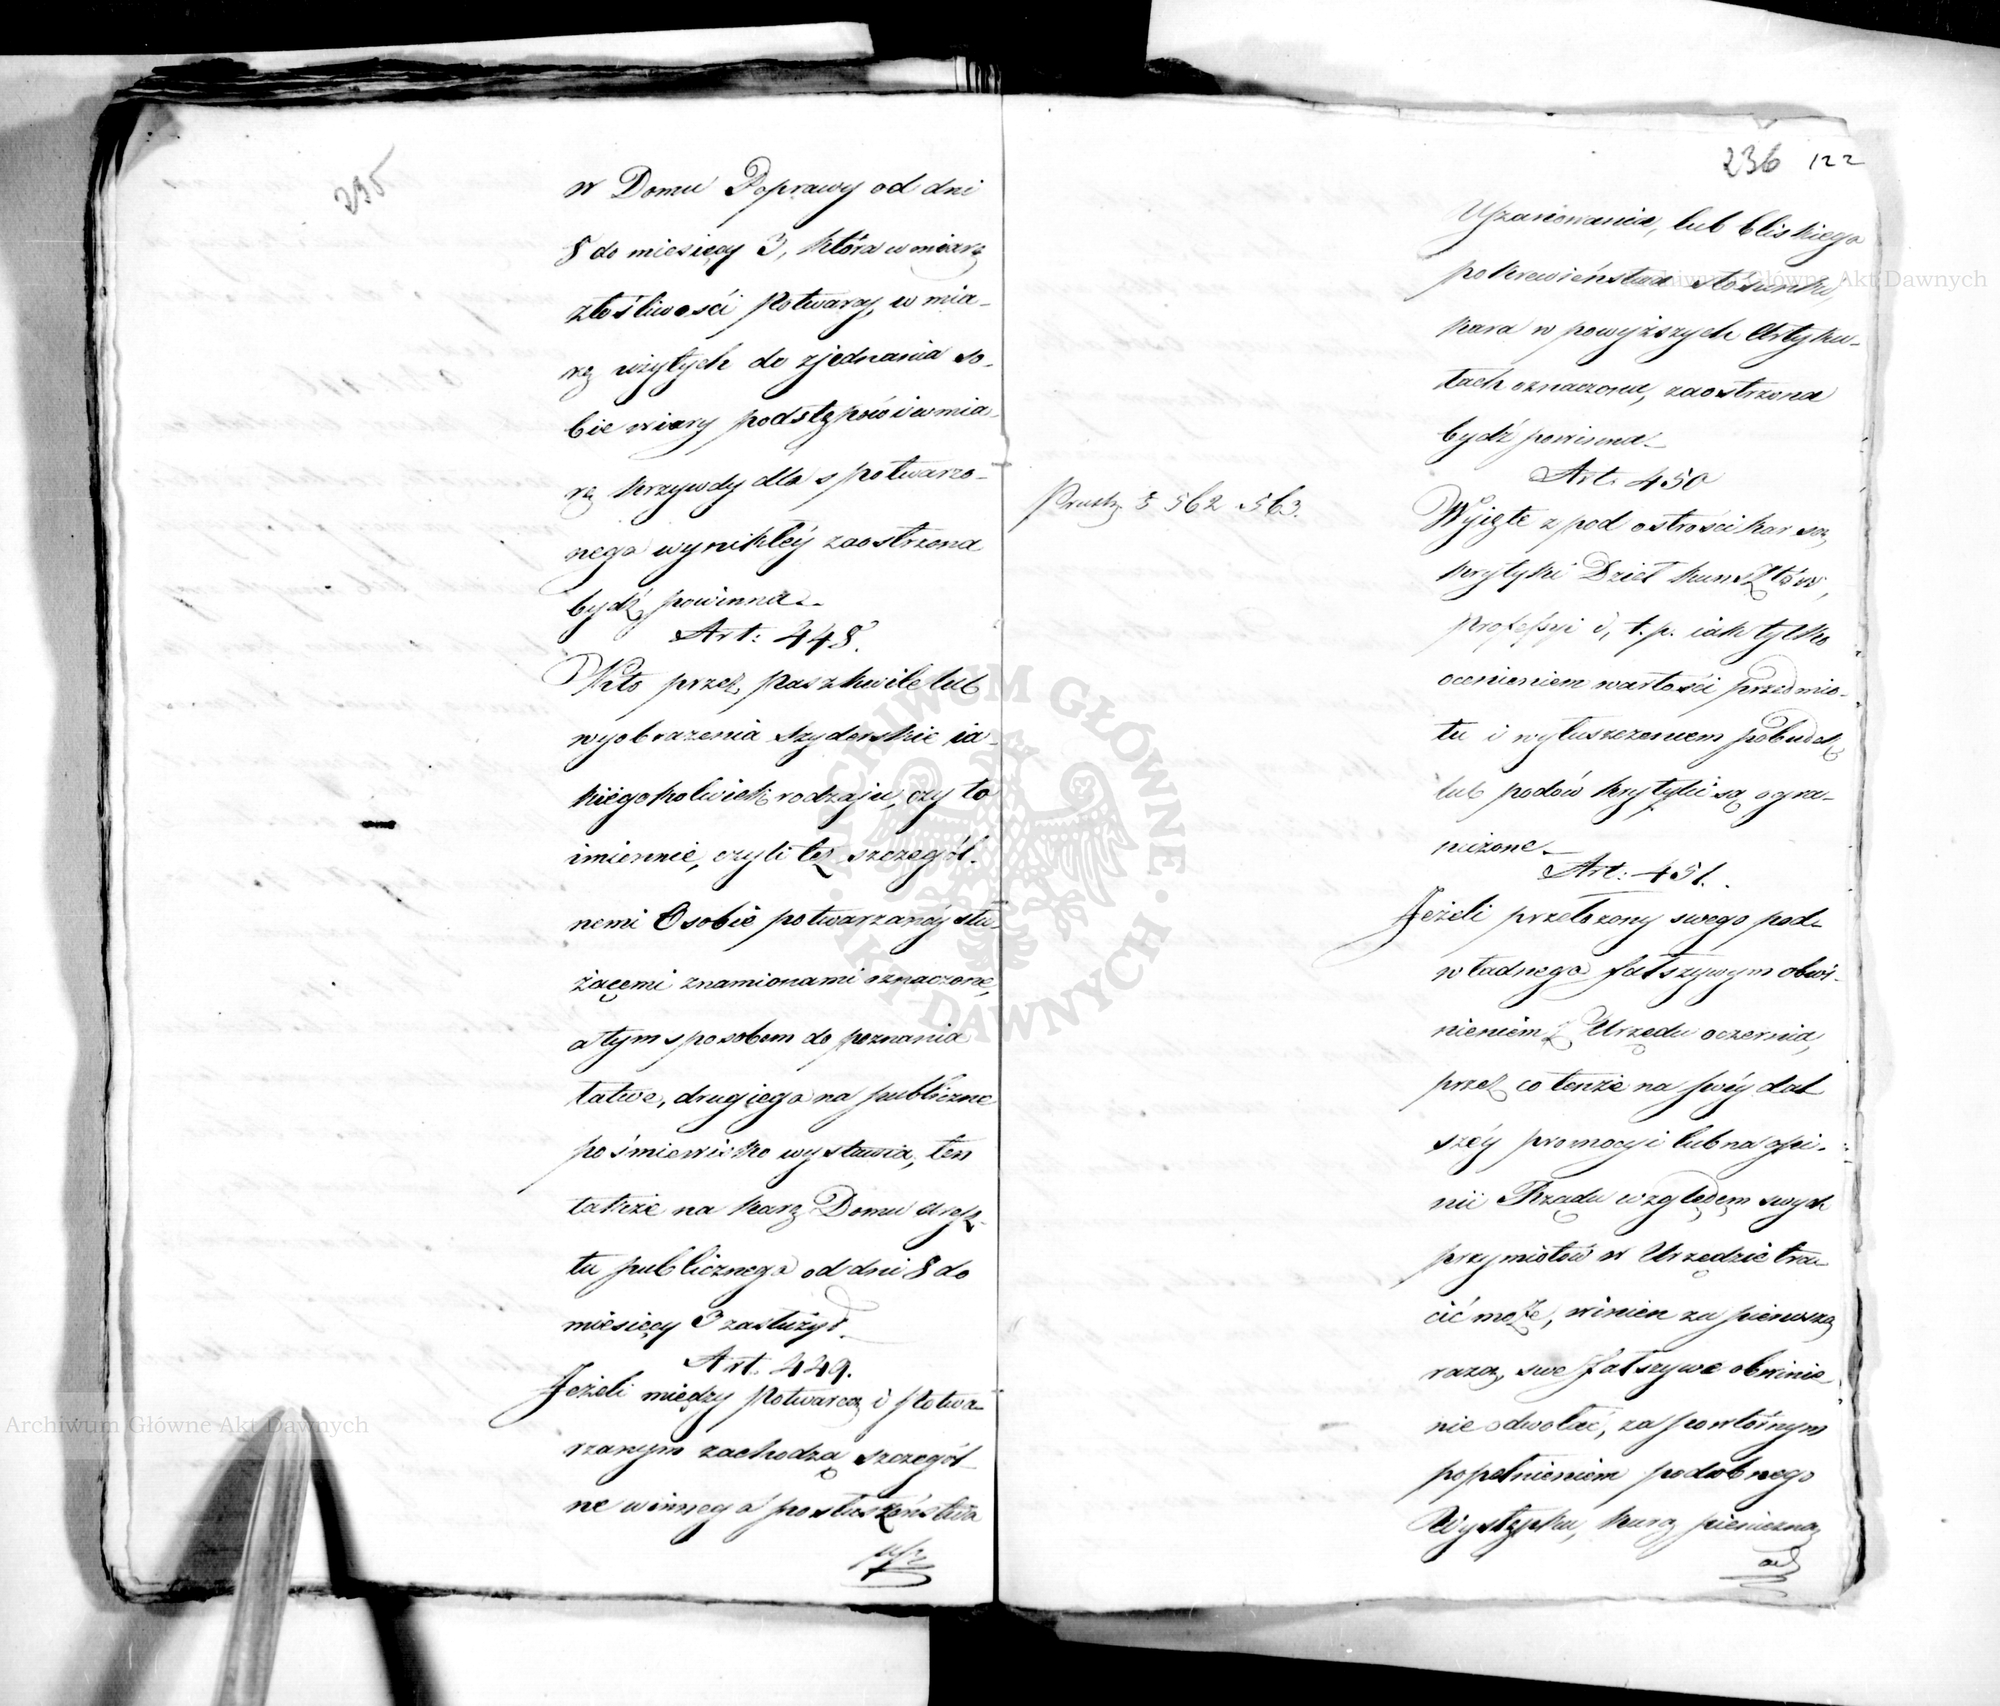 235
w Domu Poprawy od dni
8 do miesięcy 3, która w miarę
złośliwości Potwarcy, w mia-
rę użytych do zjednania so-
bie wiary podstępów i w mia-
rę krzywdy dla spotwarzo-
nego wynikłéy zaostrzona
bydź powinna.
Art: 448.
Kto przez paszkwile lub
wyobrażenia szyderskie ia-
kiegokolwiek rodzaju, czy to
imiennie, czyli też szczegól-
nemi Osobie potwarzanéy słu-
żącemi znamionami oznaczone,
a tym sposobem do poznania
łatwe, drugiego na publiczne
pośmiewisko wystawia, ten
także na karę Domu aresz-
tu publicznego od dni 8 do
miesięcy 3 zasłużył.
Art. 449.
Jeżeli między Potwarcą i potwa-
rzanym zachodzą szczegól-
ne winnego posłuszeństwa
usz
236 122
Uszanowania, lub bliskiego
pokrewieństwa stosunki,
kara w powyższych Artyku-
łach oznaczona, zaostrzona
bydź powinna.
Art. 450
Prusk. § 562 563.
Wyięte z pod ostrości kar są,
krytyki Dzieł kunsztów,
professyi i, t. p. iak tylko
ocenieniem wartości przedmio-
tu i wyłuszczeniem pobudek
lub podów krytyki są ogra-
niczone.
Art: 451.
Jeżeli przełożony swego pod-
władnego fałszywym obwi-
nieniem z Urzędu oczernia,
przez co tenże na swéy dal
széy promocyi lub na opi-
nii Rządu względem swych
przymiotów w Urzędzie tra-
cić może, winien za pierwszą
razą, swe fałszywe obwinie
nie odwołać, za powtórnym
popełnieniem podobnego
Występku, karę pieniężną
od
Archiwum Główne Akt Dawnych
Archiwum Główne Akt Dawnych
ARCHIWUM GŁÓWNE AKT DAWNYCH